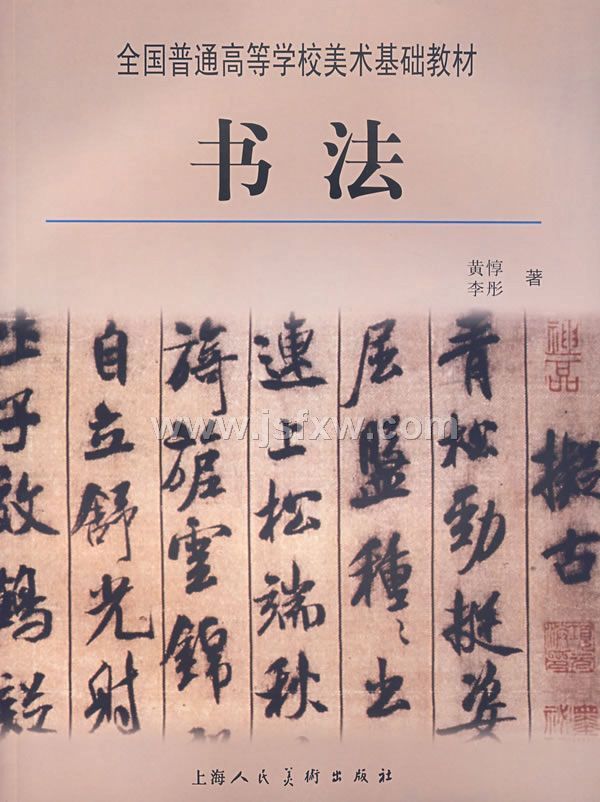 全国普通高等学校美术基础教材
书法
黄惇
李彤
著
擬古
青松勁挺姿
屈盤種〻出
連上松端秋
旖旎雲錦
自立舒光射
子效鶴
www.jsfxw.com
上海人民美術出版社